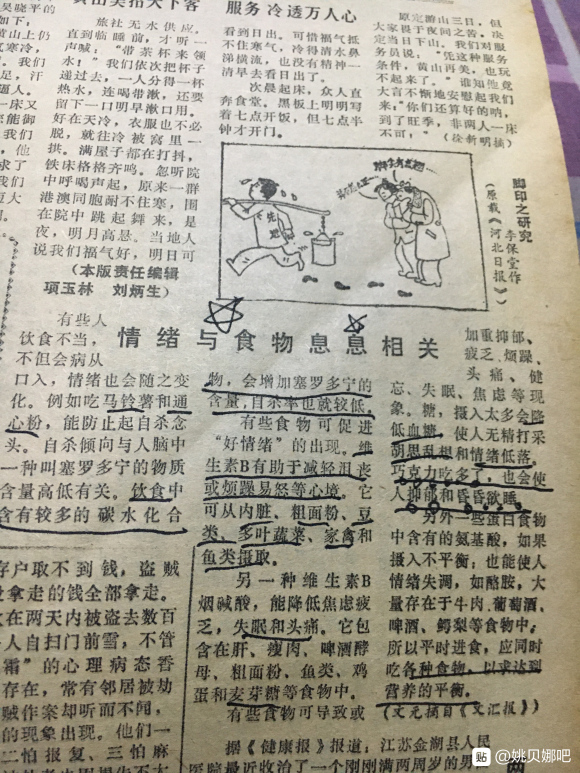 吴晓平的
如下。
黄山上仍
气寒冷,
我们
足,汗
逼人。
一床又
能御
我们
,他
求了
我们
夏大
黄山笑拍天下客
旅社无水供应,
直到临睡前,才听一
声喊:“带茶杯来领
水!”我们依次把杯子
递过去,一人分得一杯
热水,连喝带漱,还要
留下一口明早漱口用。
好在天冷,衣服也不必
脱,就往冷被窝里一
拱。满屋子都在打抖,
铁床格格齐鸣。忽听院
中呼喝声起,原来一群
港澳同胞耐不住寒,围
在院中跳起舞来,是
夜,明月高悬。当地人
说我们福气好,明日可
(本版责任编辑
项玉林 刘炳生)
服务冷透万人心
看到日出。可惜福气抵
不住寒气,冷得清水鼻
涕横流,也没有精神一
清早去看日出了。
次晨起床,众人直
奔食堂。黑板上明明写
着七点开饭,但七点半
钟才开门。
原定游山三日,但
大家畏于夜间之苦,决
定当日下山。我们对服
务员说,“凭这种服务
条件,黄山再美,也玩
不起来了。”谁知他竟
大言不惭地安慰起我们
来:“你们还算好的呐,
到了旺季,非两人一床
不可!”(徐新明摘)
脚印之研究
李保堂作
(原载《河北日报》)
情绪与食物息息相关
有些人
饮食不当,
不但会病从
口入,情绪也会随之变
化。例如吃马铃薯和通
心粉,能防止起自杀念
头。自杀倾向与人脑中
一种叫塞罗多宁的物质
含量高低有关。饮食中
含有较多的碳水化合
物,会增加塞罗多宁的
含量,自杀率也就较低。
有些食物可促进
“好情绪”的出现。维
生素B有助于减轻沮丧
或烦躁易怒等心境。它
可从内脏、粗面粉、豆
类、多叶蔬菜、家禽和
鱼类摄取。
另一种维生素B
烟碱酸,能降低焦虑疲
乏,失眠和头痛。它包
含在肝、瘦肉、啤酒酵
母、粗面粉、鱼类、鸡
蛋和麦芽糖等食物中。
有些食物可导致或
加重抑郁、
疲乏、烦躁、
头痛、健
忘、失眠、焦虑等现
象。糖,摄入太多会降
低血糖,使人无精打采
胡思乱想和情绪低落。
巧克力吃多了,也会使
人抑郁和昏昏欲睡。
另外一些蛋白食物
中含有的氨基酸,如果
摄入不平衡;也能使人
情绪失调,如酪胺,大
量存在于牛肉、葡萄酒、
啤酒、鳄梨等食物中;
所以平时进食,应同时
吃各种食物,以求达到
营养的平衡。
(文元摘自《文汇报》)
存户取不到钱,盗贼
拿走的钱全部拿走。
在两天内被盗去数百
人自扫门前雪,不管
霜”的心理病态香
存在,常有邻居被劫
贼作案却听而不闻,
的现象出现。他们一
二怕报复、三怕麻
据《健康报》报道:江苏金湖县人民
医院最近收治了一个刚刚满两周岁的男
贴 @姚贝娜吧